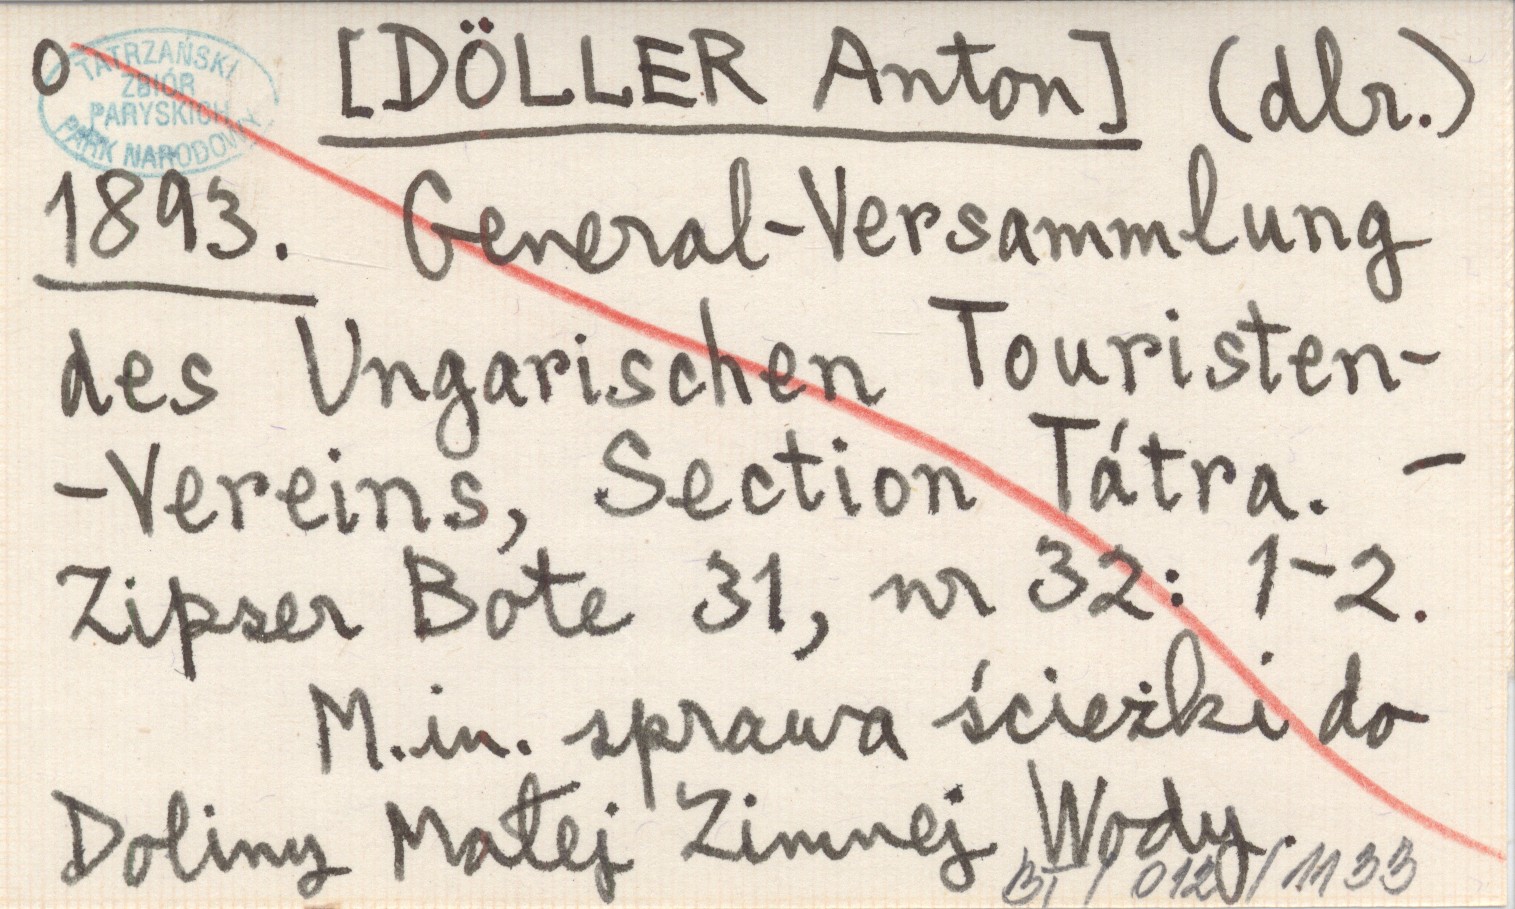 O [DÖLLER Anton] (dlr.)
TATRZAŃSKI
ZBIÓR
PARYSKICH
PARK NARODOWY
1893. General-Versammlung
des Ungarischen Touristen-
-Vereins, Section Tátra. -
Zipser Bote 31, nr 32: 1-2.
M.in. sprawa ścieżki do
Doliny Małej Zimnej Wody.
BT / 012 / 1133